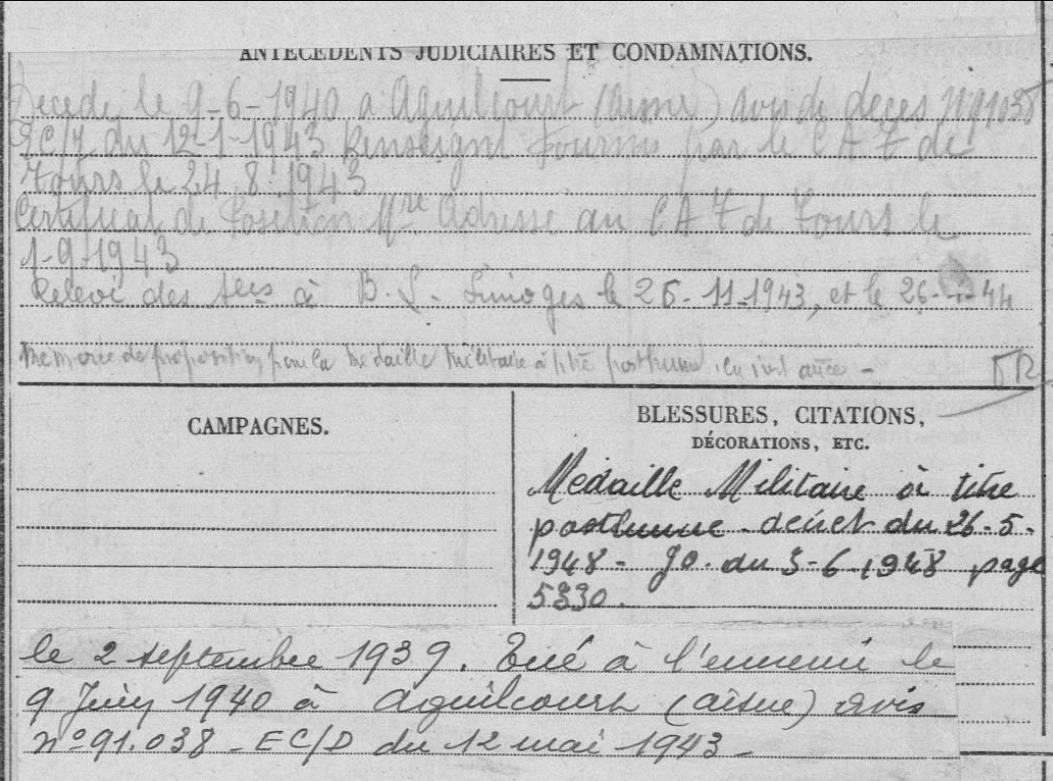 ANTÉCÉDENTS JUDICIAIRES ET CONDAMNATIONS.
Décédé le 9-6-1940 à Aguilcourt (Aisne) avis de décès N° 91038
du 12-1-1943 Renseignt fournis par le C A T de
Tours le 24 8 1943
Certificat de Position Mre Adressé au C A T de Tours le
1-9-1943
Relevé des à B. S. Limoges le 25-11-1943, et le 26-1-44
Mémoire de proposition pour la médaille militaire à titre posthume, en instance -
CAMPAGNES.
BLESSURES, CITATIONS,
DÉCORATIONS, ETC.
Médaille Militaire à titre
posthume décret du 26-5-
1948 - JO. du 3-6-1948 page
5330.
le 2 septembre 1939. Tué à l'ennemi le
9 Juin 1940 à Aguilcourt (Aisne) avis
n° 91.038 - EC/D du 12 mai 1943 -